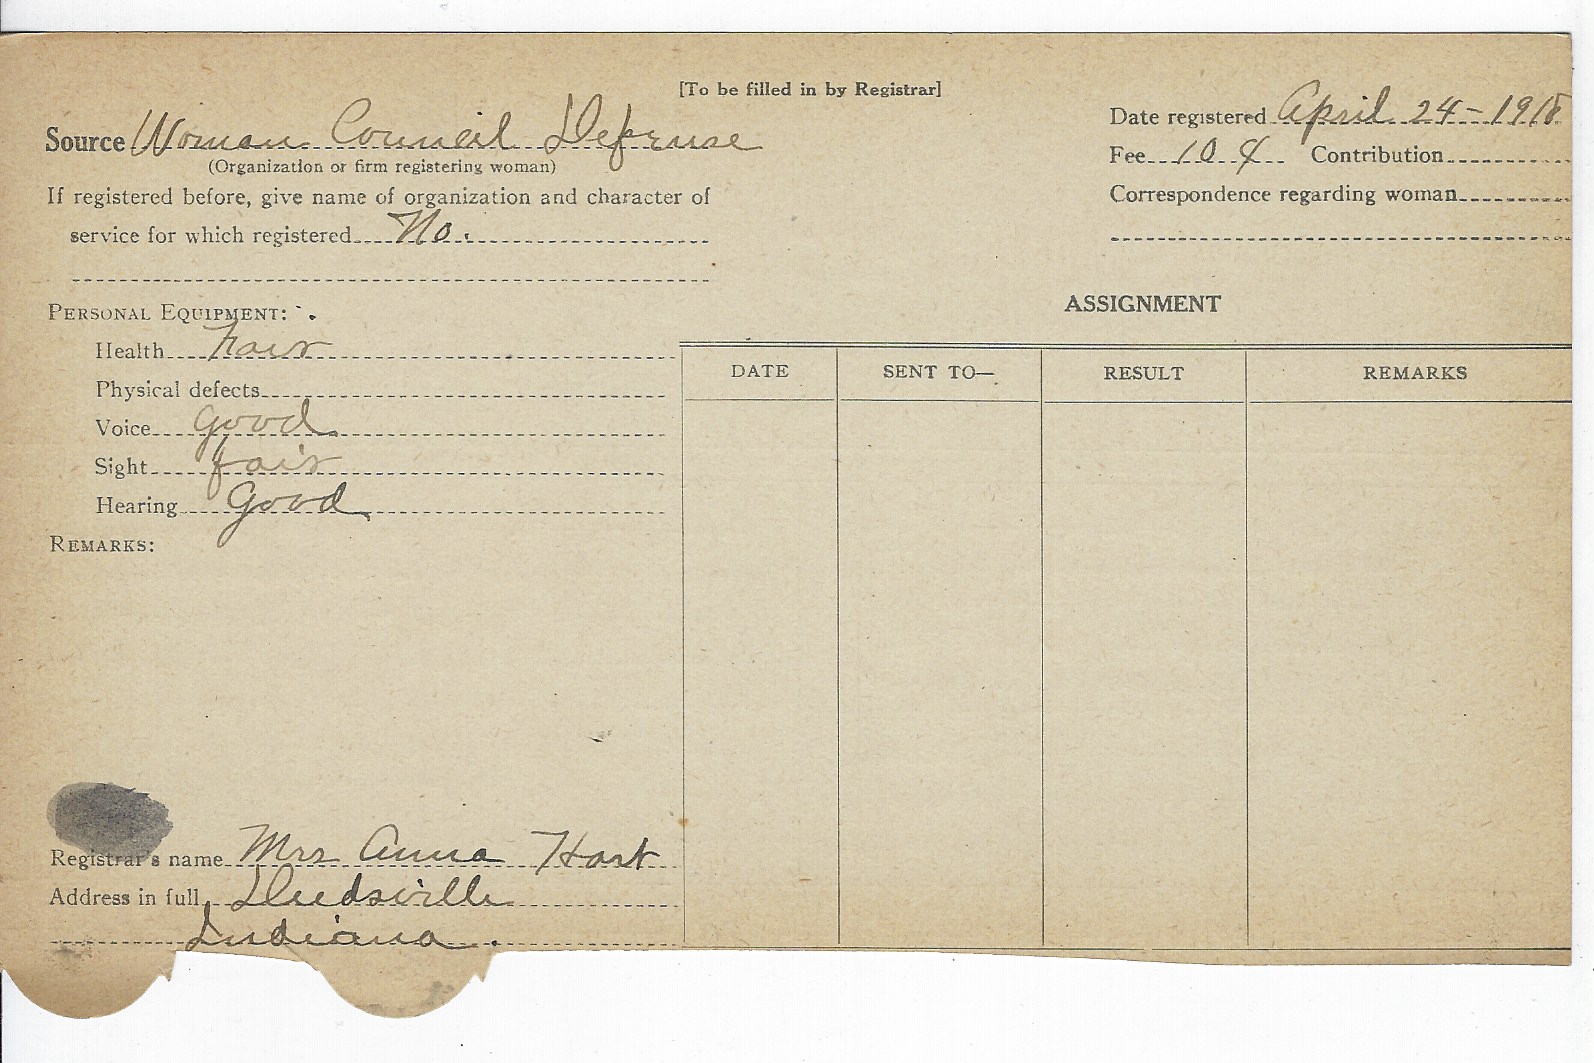 [To be filled in by Registrar]
Source Woman Council Defense
(Organization or firm registering woman)
If registered before, give name of organization and character of
service for which registered No.
Date registered April 24 - 1918
Fee 10 ¢ Contribution
Correspondence regarding woman
PERSONAL EQUIPMENT:
Health Fair
Physical defects
Voice Good
Sight fair
Hearing Good
REMARKS:
ASSIGNMENT
DATE SENT TO— RESULT REMARKS
Registrar's name Mrs Anna Hart
Address in full Deedsville
Indiana.